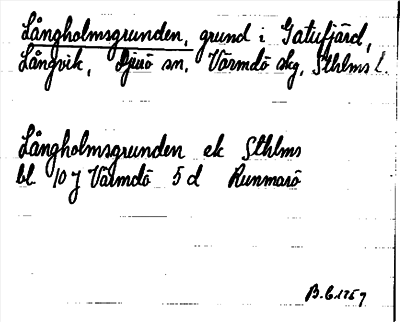 Långholmsgrunden, grund i Gatufjärd,
Långvik, Djurö sn, Värmdö skg, Sthlms l.
Långholmsgrunden ek Sthlms
bl 10 J Värmdö 5 d Runmarö
B.G. 1959